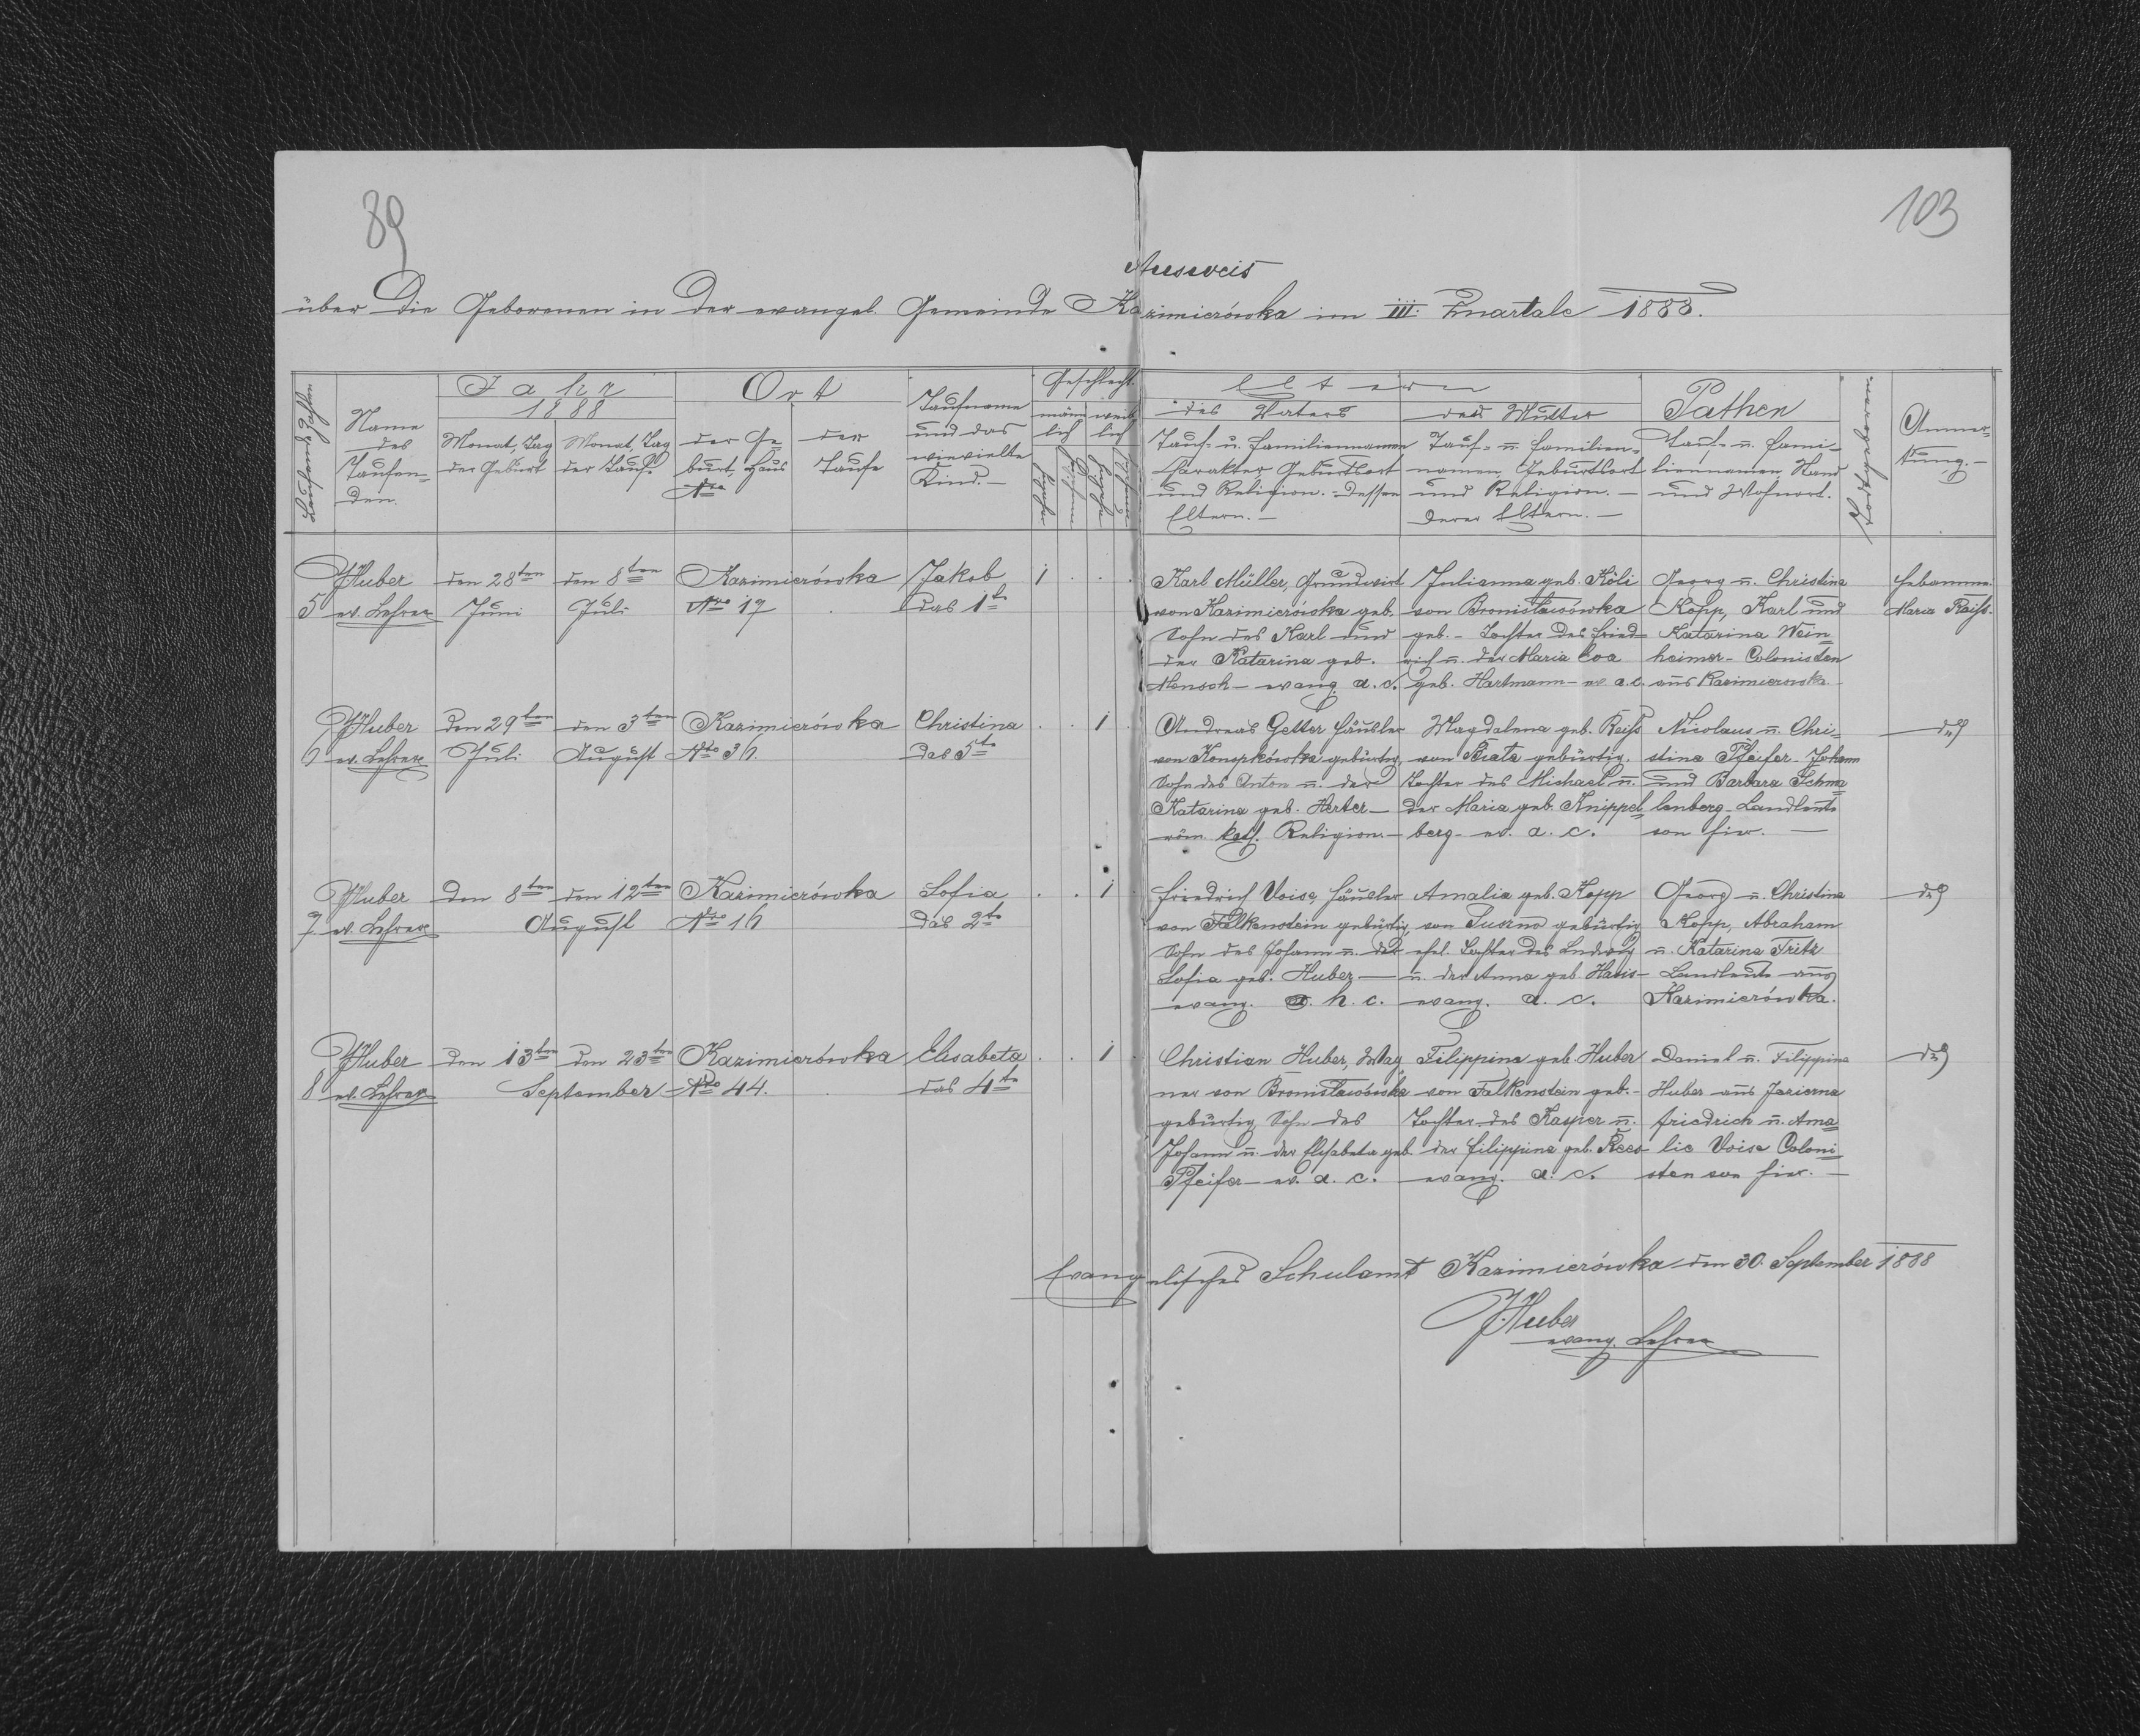 89
103
Ausweis
über die Geborenen in der evangel. Gemeinde Kazimierówka im III. Quartale 1888.
Laufende Zahl
Name des Taufenden.
Jahr 1888
Monat, Tag der Geburt
Monat, Tag der Taufe
Ort
der Geburt, Haus Nro
der Taufe
Taufname und das wievielte Kind.—
Geschlecht
männlich
weiblich
Eltern
des Vaters
Tauf- u. Familiennamen
Charakter Geburtsort
und Religion. Dessen
Eltern.—
der Mutter
Tauf- u. Familien-
namen, Geburtsort
und Religion.—
Deren Eltern.—
Pathen
Tauf- u. Fami-
liennamen, Stand
und Wohnort.
Todtgeboren.
Anmer-
kung.—
5
JHuber
ev. Lehrer
den 28ten
Juni
den 8ten
Juli
Kazimierówka
Nro 17
Jakob
das 1te
1
Karl Müller, Grundwirt
von Kazimierówka geb.
Sohn des Karl und
der Katarina geb.
Mensch – evang. a. c.
Julianna geb. Köli
von Bronisławówka
geb. – Tochter des Fried-
rich u. der Maria Eva
geb. Hartmann – ev. a. c.
Georg u. Christina
Kopp, Karl und
Katarina Wein-
heimer – Colonisten
aus Kazimierowka.
Hebamme.
Maria Reiss.
6
JHuber
ev. Lehrer
den 29ten
Juli
den 3ten
August
Kazimierówka
Nro 36.
Christina
das 5te
1
Andreas Getter Häusler
von Konopkówka gebürtig,
Sohn des Anton u. der
Katarina geb. Herter –
röm. kath. Religion.—
Magdalena geb. Reiss
von Beata gebürtig.
Tochter des Michael u.
der Maria geb. Knippel-
berg – ev. a. c.
Nicolaus u. Chri-
stina Pfeifer – Johann
und Barbara Schma-
lenberg – Landleute
von hier.—
dto
7.
JHuber
ev. Lehrer
den 8ten
den 12ten
August
Kazimierówka
Nro 16
Sofia
das 2te
1
Friedrich Voise, Häusler
von Falkenstein gebürtig,
Sohn des Johann u. der
Sofia geb. Huber —
evang. h. c.
Amalia geb. Kopp
von Suszno gebürtig
ehel. Tochter des Ludwig
u. der Anna geb. Haris –
evang. a. c.
Georg u. Christina
Kopp, Abraham
u. Katarina Fritz
Landleute aus
Kazimierówka.
dto
8
JHuber
ev. Lehrer
den 13ten
den 23ten
September
Kazimierówka
Nro 44.
Elisabeta
das 4te
1
Christian Huber, Wag-
ner von Bronisławówka
gebürtig, Sohn des
Johann u. der Elisabeta geb.
Pfeifer – ev. a. c.
Filippina geb. Huber
von Falkenstein geb. –
Tochter des Kasper u.
der Filippina geb. Rees –
evang. a. c.
Daniel u. Filippina
Huber aus Jezierna
Friedrich u. Ama-
lie Voise Coloni-
sten von hier.—
dto
Evangelisches Schulamt Kazimierówka den 30. September 1888
JHuber
evang. Lehrer